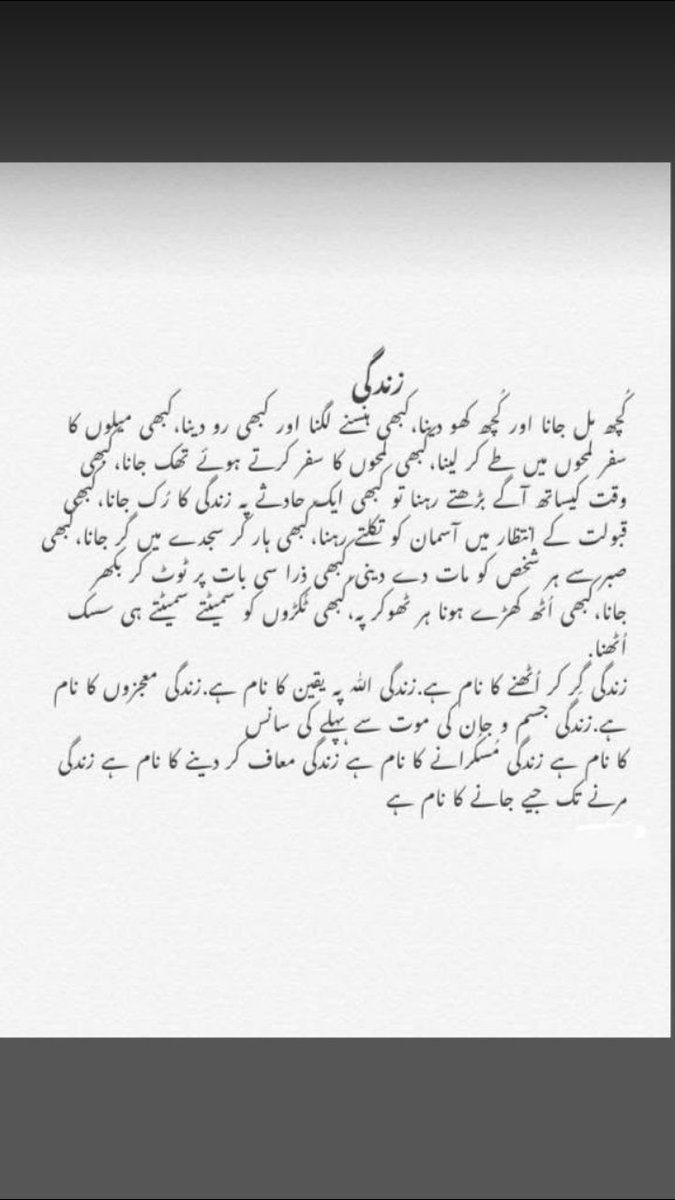 زندگی
کُچھ مل جانا اور کُچھ کھو دینا،کبھی ہنسنے لگنا اور کبھی رو دینا،کبھی میلوں کا
سفر لمحوں میں طے کر لینا،کبھی لمحوں کا سفر کرتے ہوئے تھک جانا،کبھی
وقت کیساتھ آگے بڑھتے رہنا تو کبھی ایک حادثے پہ زندگی کا رُک جانا،کبھی
قبولت کے انتظار میں آسمان کو تکتے رہنا،کبھی ہار کر سجدے میں گر جانا،کبھی
صبر سے ہر شخص کو مات دے دینی،کبھی ذرا سی بات پر ٹوٹ کر بکھر
جانا،کبھی اُٹھ کھڑے ہونا ہر ٹھوکر پہ،کبھی ٹکڑوں کو سمیٹتے سمیٹتے ہی سسک
اُٹھنا.
زندگی گِر کر اُٹھنے کا نام ہے.زندگی اللہ پہ یقین کا نام ہے.زندگی معجزوں کا نام
ہے.زندگی جسم و جان کی موت سے پہلے کی سانس
کا نام ہے زندگی مُسکرانے کا نام ہے زندگی معاف کر دینے کا نام ہے زندگی
مرنے تک جیے جانے کا نام ہے